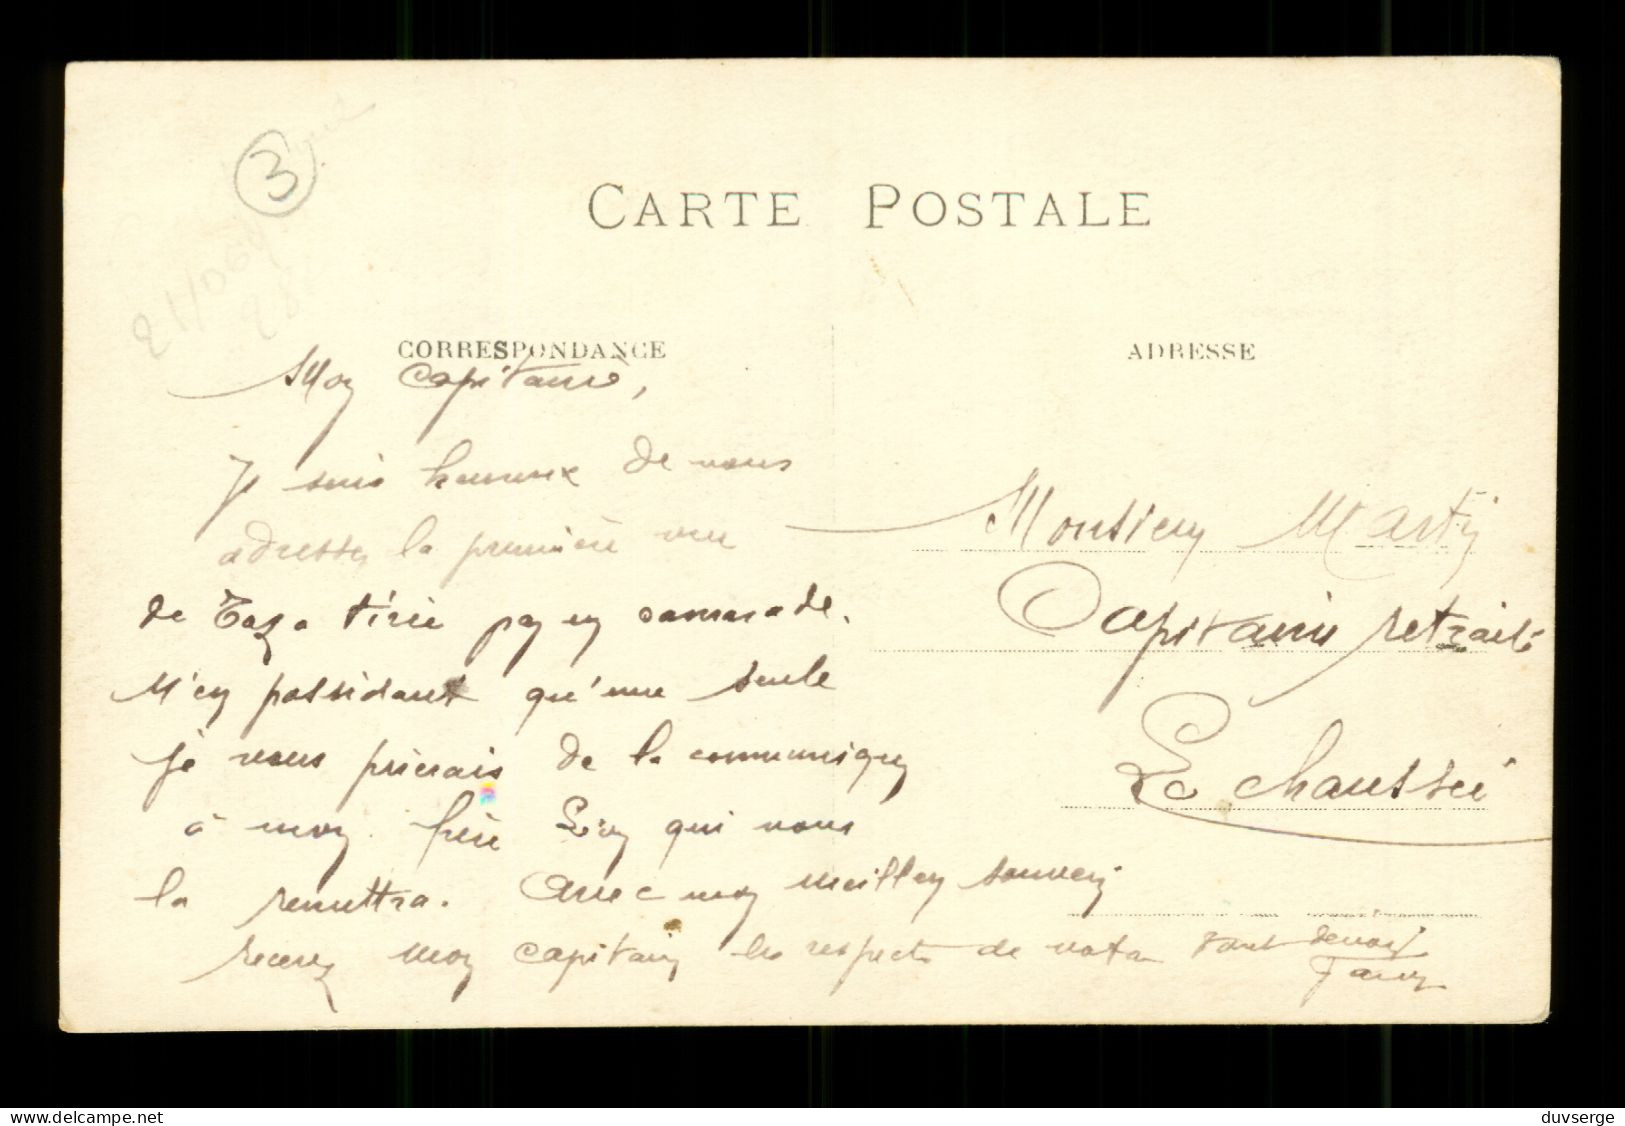 3
CARTE POSTALE
CORRESPONDANCE
ADRESSE
Mon Capitaine,
Je suis heureux de vous
adresser la première vue
de Taza tirée par un camarade.
N'en possédant qu'une seule
je vous prierais de la communiquer
à mon frère qui vous
la remettra. Avec mon meilleur souvenir
recevez mon capitaine les respects de votre tout dévoué
Monsieur Martin
Capitaine retraité
La chaussée
delcampe.net
duvserge